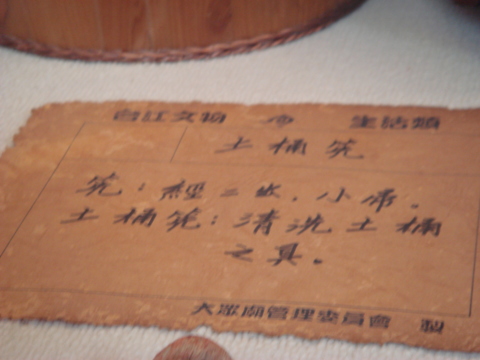 台江文物 生活類
土桶筅
筅：經二出，小帚。
土桶筅：清洗土桶
之具。
大眾廟管理委員會 製